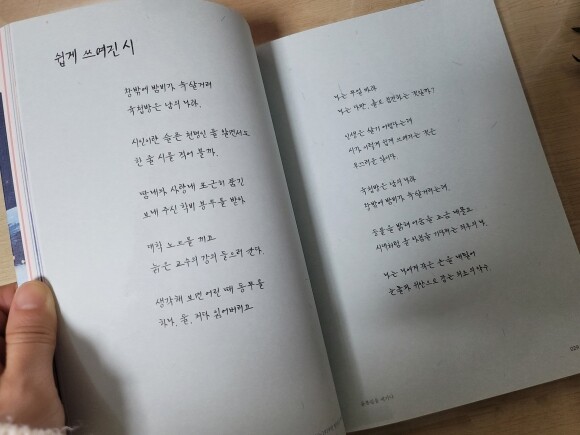 쉽게 쓰여진 시
창밖에 밤비가 속살거려
육첩방은 남의 나라,
시인이란 슬픈 천명인 줄 알면서도
한 줄 시를 적어 볼까.
땀내와 사랑내 포근히 품긴
보내 주신 학비 봉투를 받아
대학 노트를 끼고
늙은 교수의 강의 들으러 간다.
생각해 보면 어린 때 동무를
하나, 둘, 죄다 잃어버리고
나는 무얼 바라
나는 다만, 홀로 침전하는 것일까?
인생은 살기 어렵다는데
시가 이렇게 쉽게 쓰여지는 것은
부끄러운 일이다.
육첩방은 남의 나라
창밖에 밤비가 속살거리는데,
등불을 밝혀 어둠을 조금 내몰고
시대처럼 올 아침을 기다리는 최후의 나,
나는 나에게 작은 손을 내밀어
눈물과 위안으로 잡는 최초의 악수